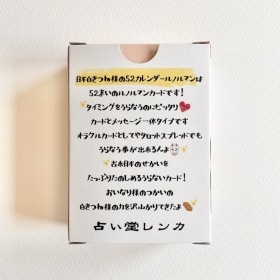 日本白きつね様の52カレンダールノルマンは
52まいのルノルマンカードです!
タイミングをうらなうのにピッタリ
カードとメッセージ一体タイプです
オラクルカードとしてやタロットスプレッドでも
うらなう事が出来るんよ
古来日本のせかいを
たっぷりたのしめるうらないカード!
おいなり様のつかいの
白きつね様の力を沢山かりてきたよ
占い堂レンカ